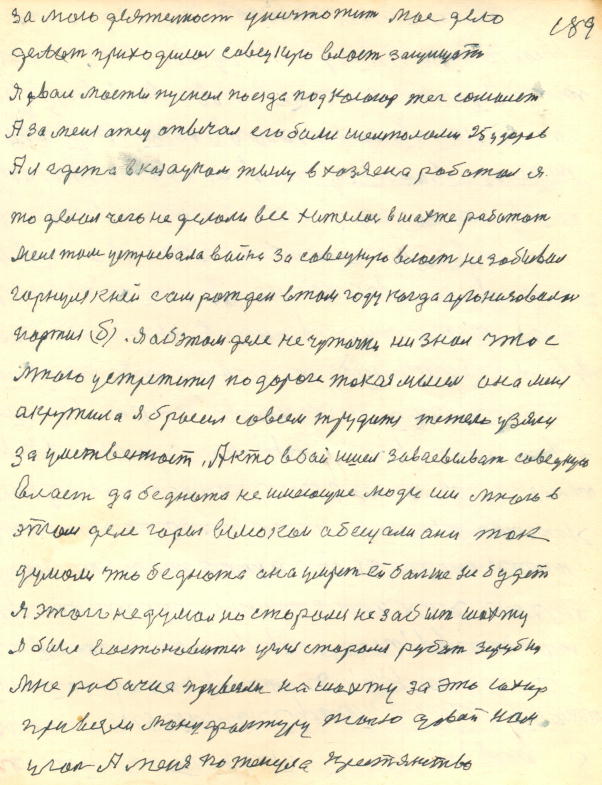 189
за мою деятелност уничтожит мое дело
делат приходилос совецкую власт защищат
я рвал мосты пускал поезда под
А за меня отец отвечал его били шомполами 25 ударов
А я где то в тылу в хозяена работал я
то делал чего не делали все жителы в шахте работат
меня там устраевала война за совецкую власт не забивал
горнулся к ней сам рожден в том году когда
партия (б). Я об этом деле не чуточки ни знал что с
много устретится по дороге такая мысел она меня
акружила я бросил совсем трудится узялся
за умственност. А кто в бой ишел заваевыват совецкую
власт да беднота не имеющие люди им много в
этом деле горы обещали они так
думали что беднота она умрет ей болше не будет
я этого не думал но старался не забыт шахту
я были востоновител угля старался рубат зарубки
мне рабочия привезли на шахту за это сахар
привезли мануфактуру толко давай нам
угол А меня потенула крестянство